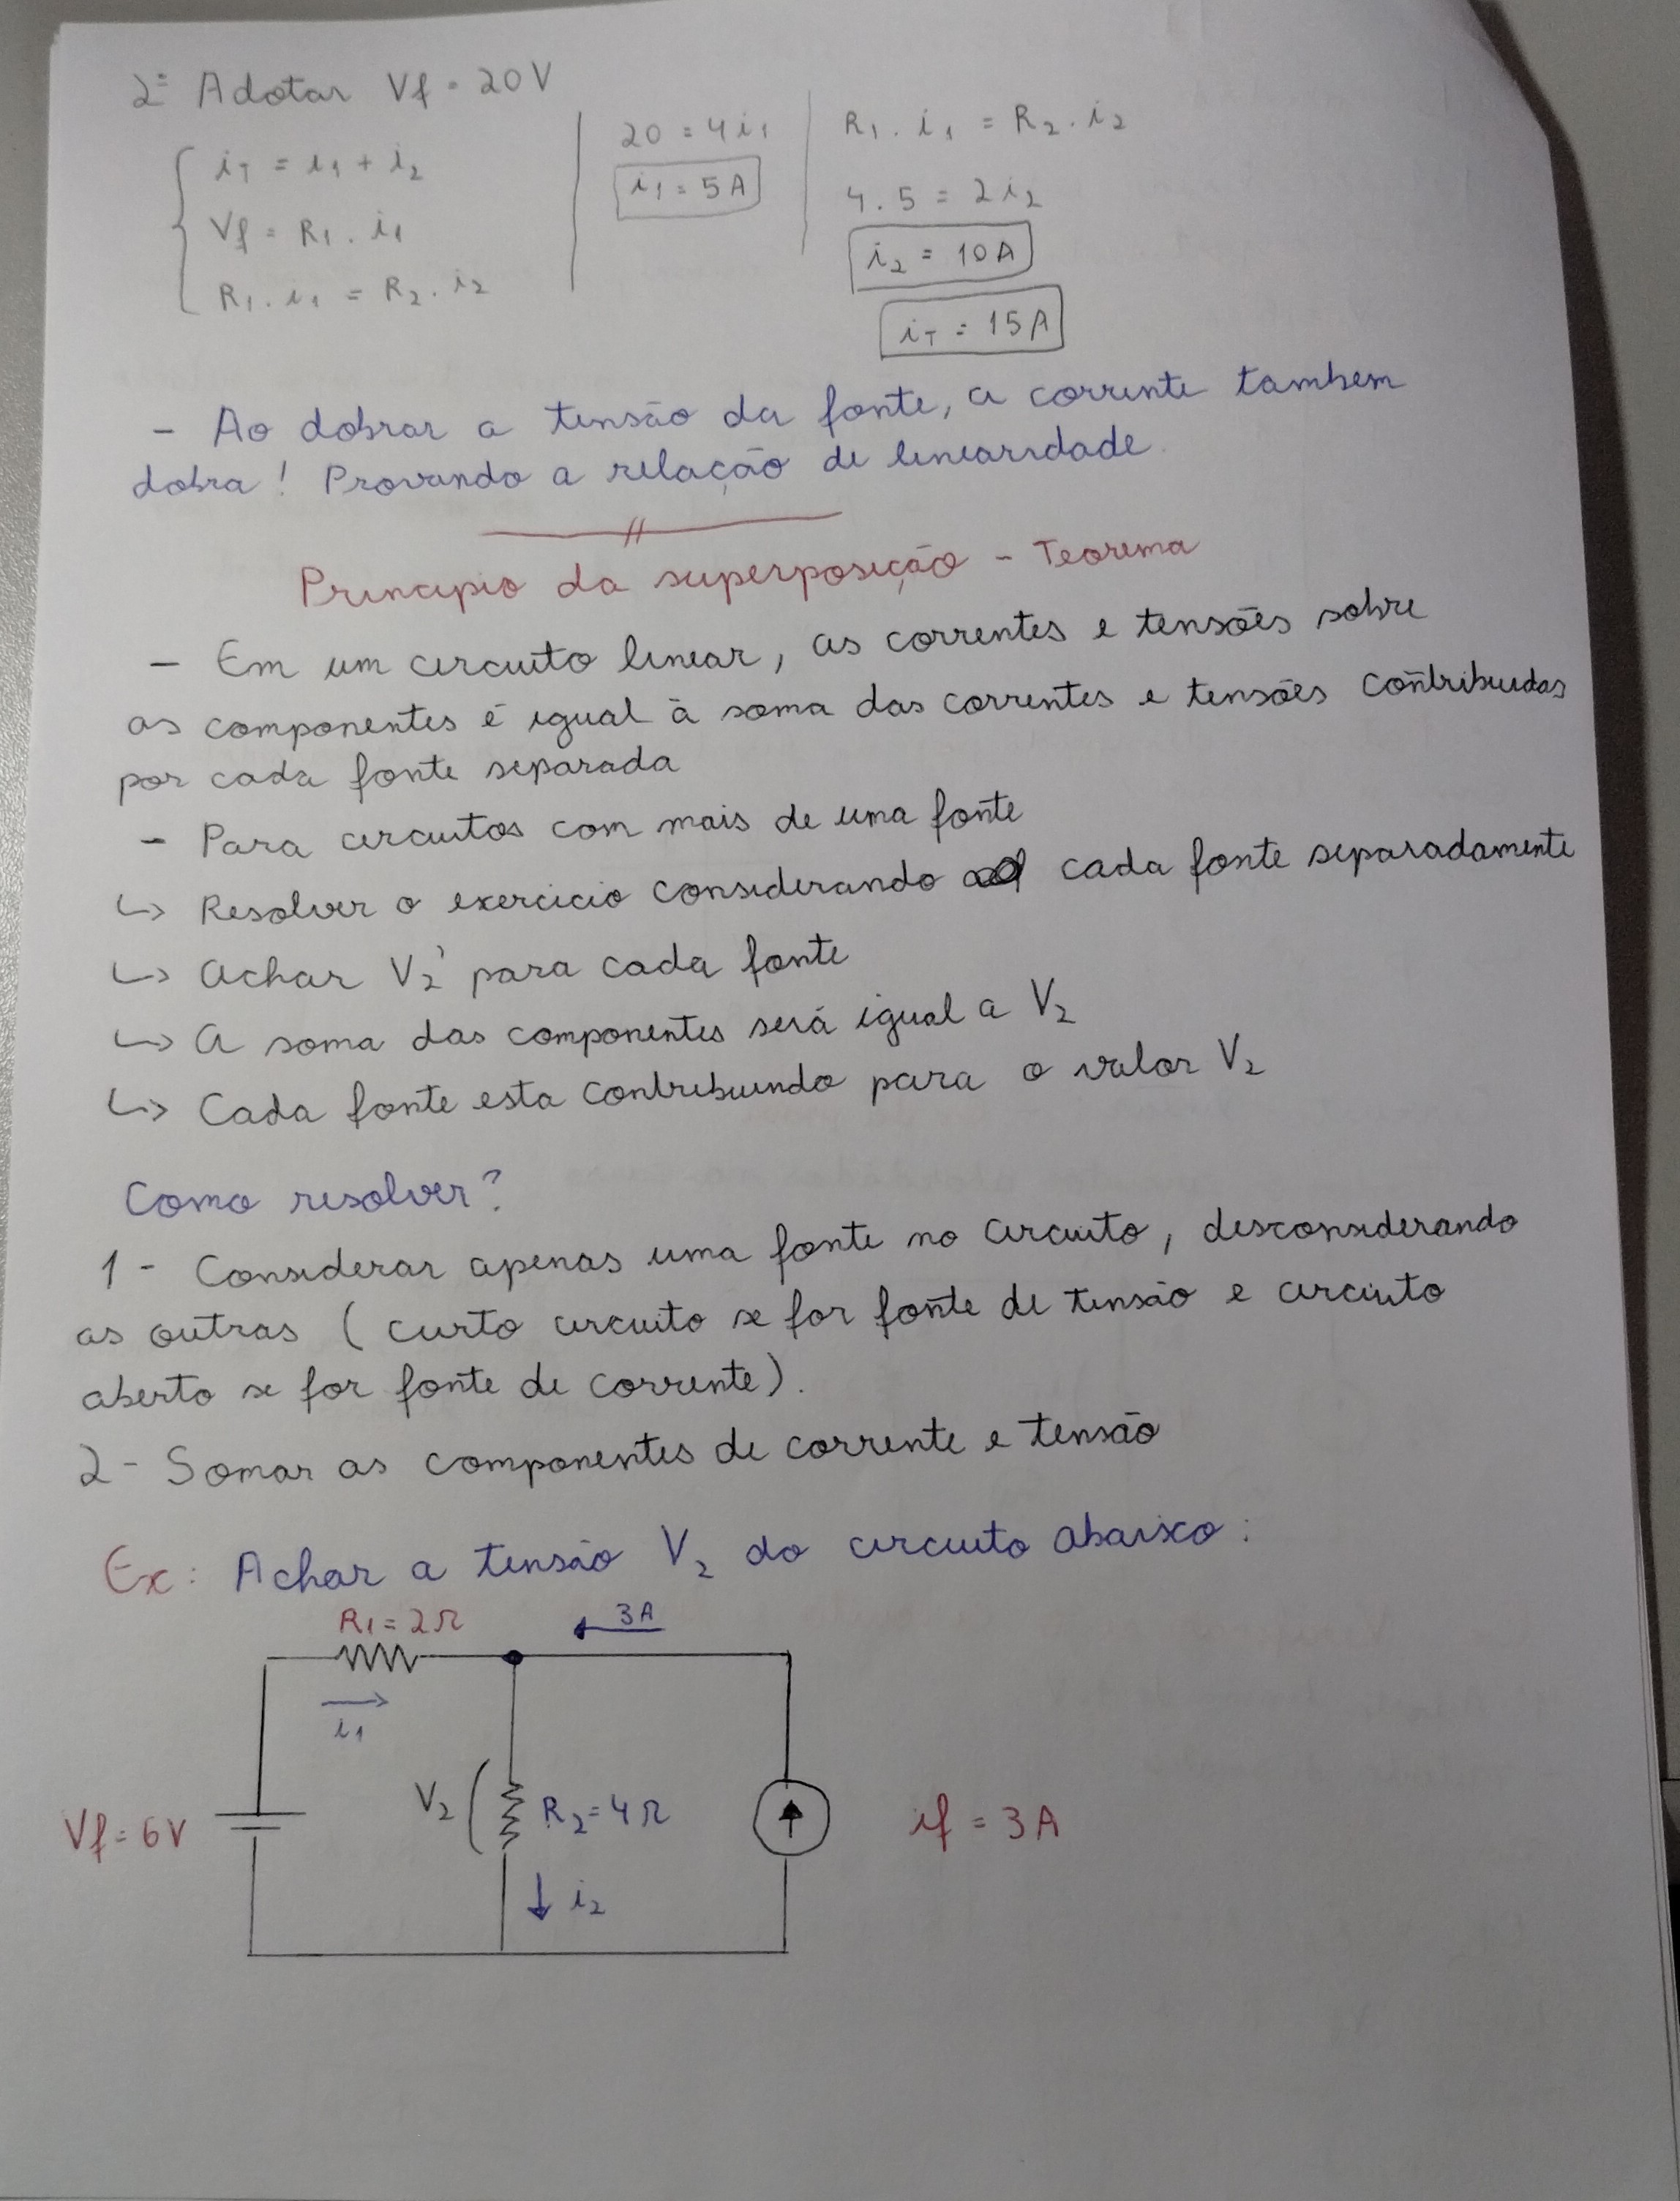 2º Adotar Vf = 20V
iT = i1 + i2
Vf = R1 . i1
R1 . i1 = R2 . i2
20 = 4i1
i1 = 5A
R1 . i1 = R2 . i2
4 . 5 = 2i2
i2 = 10A
iT = 15A
- Ao dobrar a tensão da fonte, a corrente tambem
dobra! Provando a relação de linearidade.
Principio da superposição - Teorema
- Em um circuito linear, as correntes e tensões sobre
as componentes é igual à soma das correntes e tensões contribuidas
por cada fonte separada
- Para circuitos com mais de uma fonte
↳ Resolver o exercicio considerando cada fonte separadamente
↳ Achar V2' para cada fonte
↳ A soma das componentes será igual a V2
↳ Cada fonte esta contribuindo para o valor V2
Como resolver?
1 - Considerar apenas uma fonte no circuito, desconsiderando
as outras (curto circuito se for fonte de tensão e circuito
aberto se for fonte de corrente).
2 - Somar as componentes de corrente e tensão
Ex: Achar a tensão V2 do circuito abaixo:
R1 = 2Ω
3A
i1
Vf = 6V
V2
R2 = 4Ω
if = 3A
i2